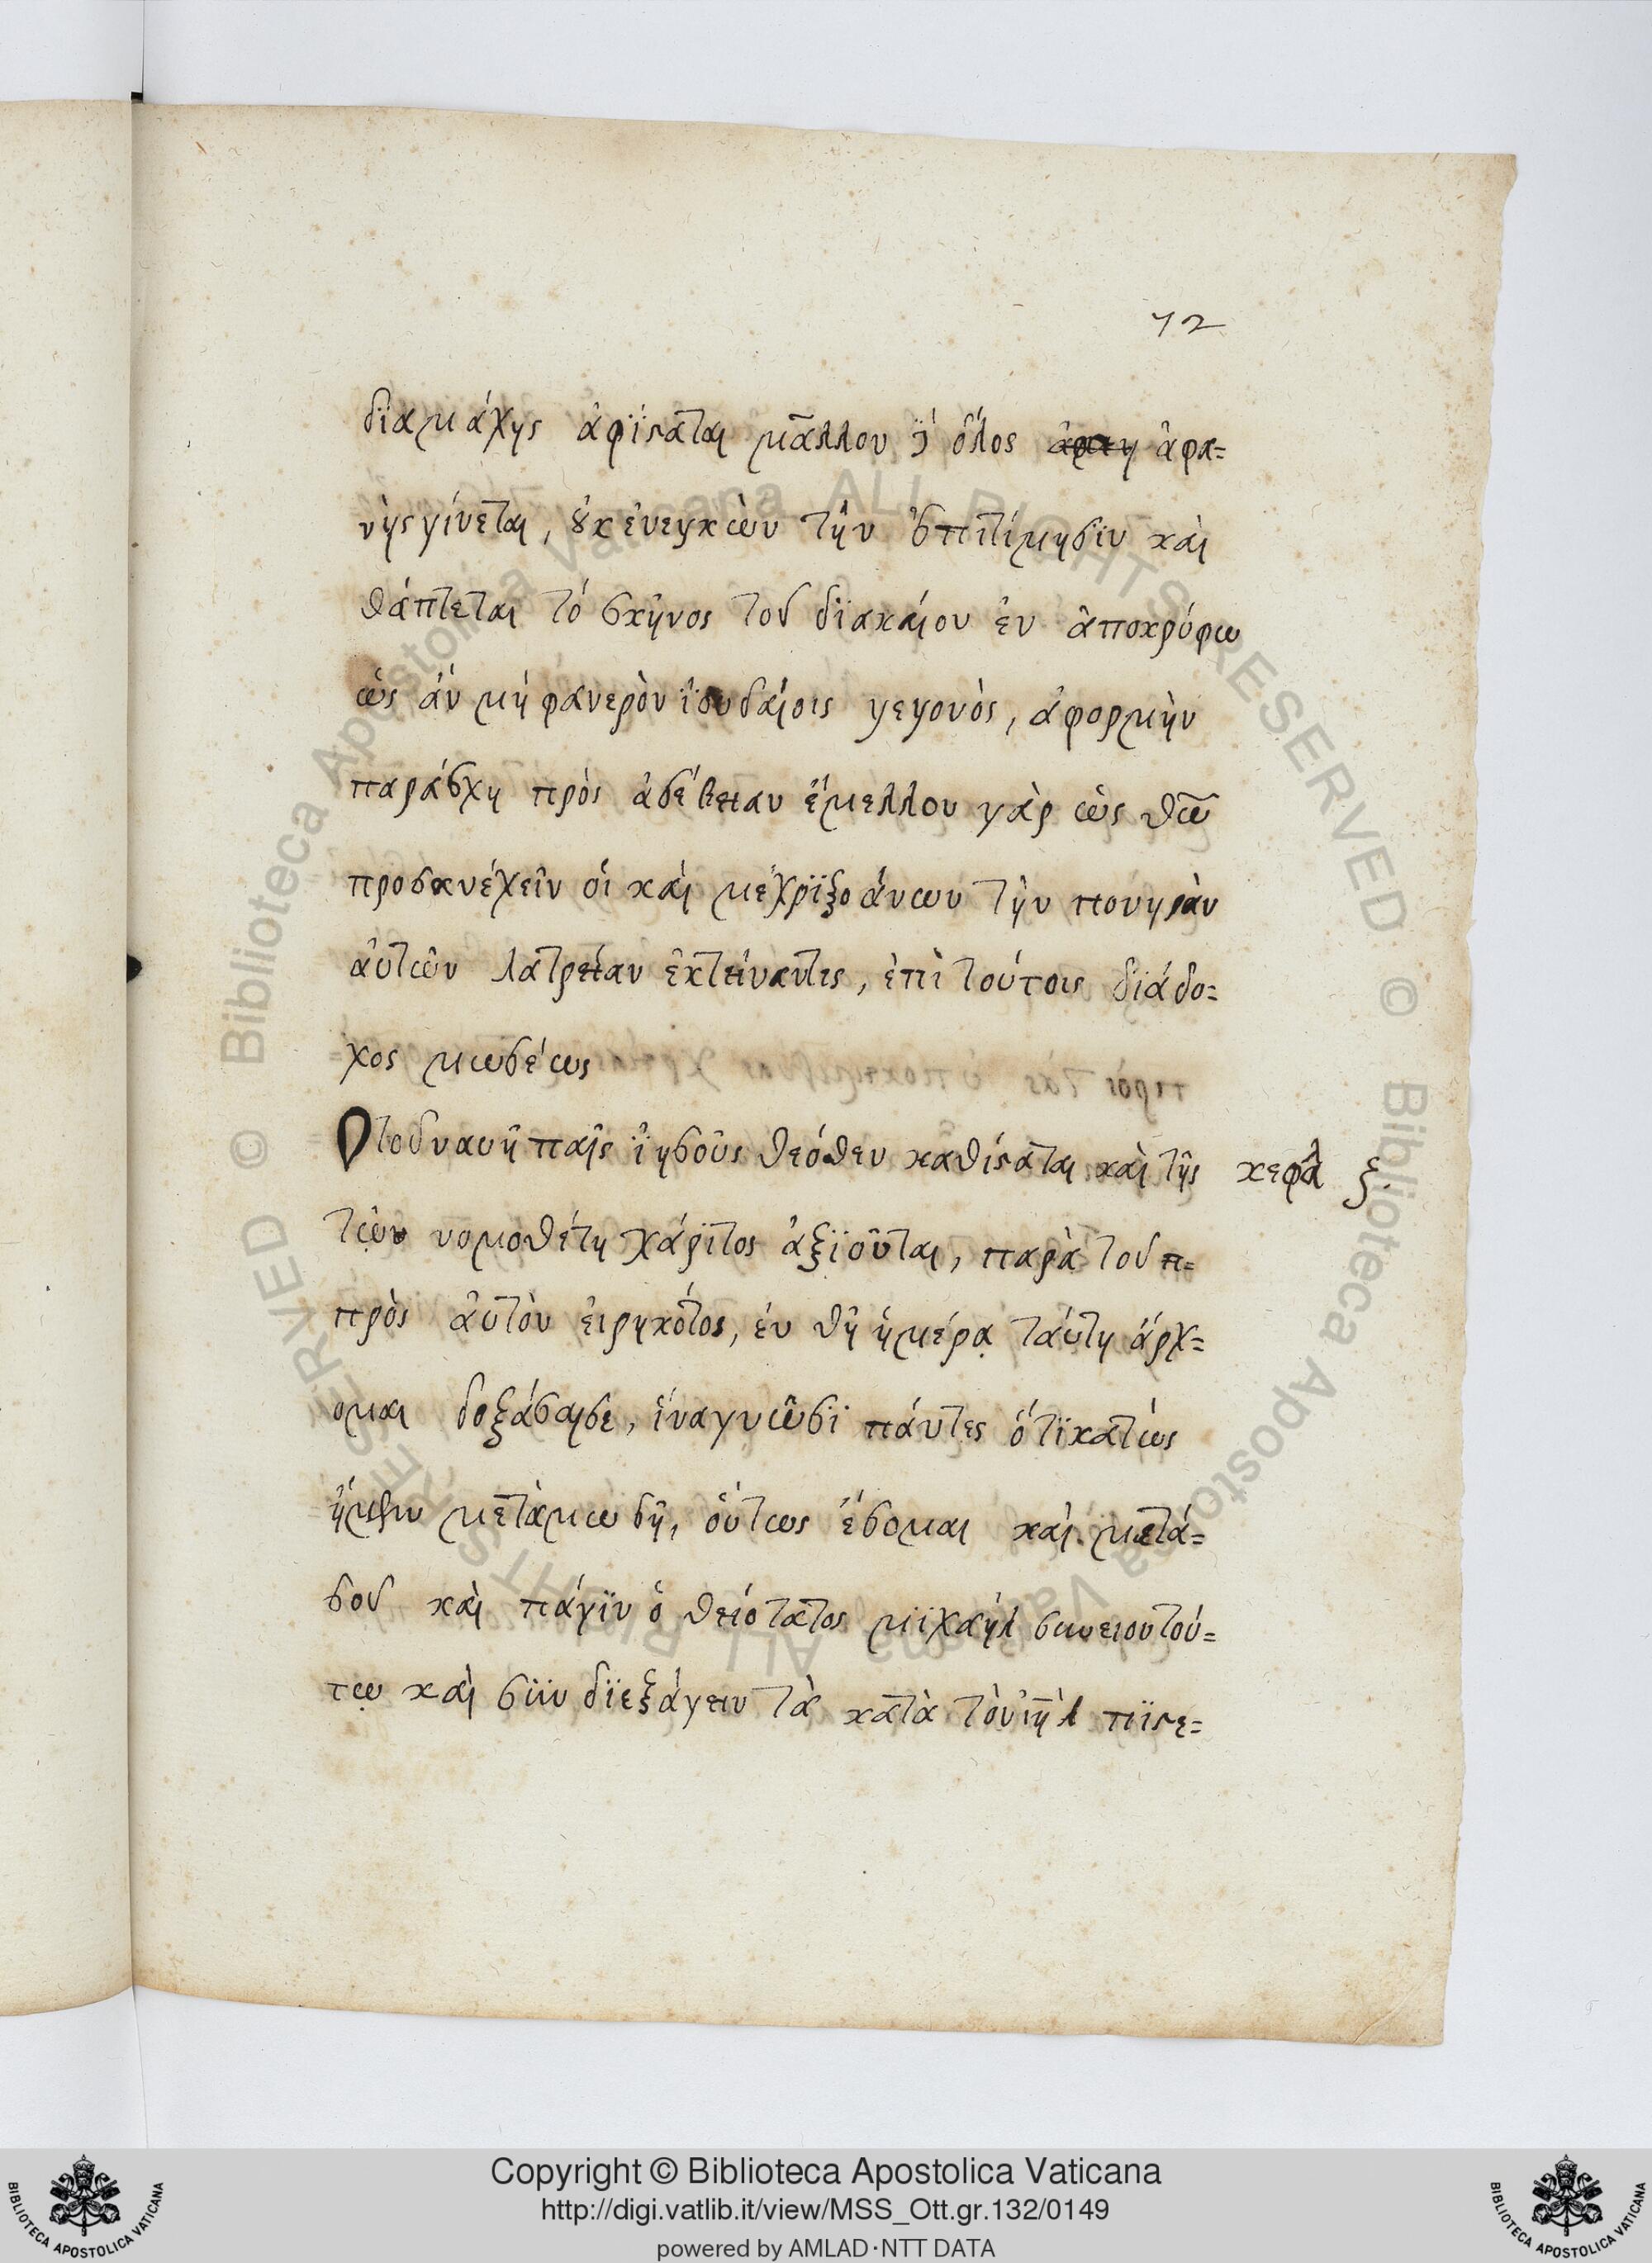 72
διαμάχης ἀφίσταται μᾶλλον ἢ ὅλος ἀφα=
νὴς γίνεται, οὐκ ἐνεγκὼν τὴν ἐπιτίμησιν καὶ
θάπτεται τό σκῆνος τοῦ διακαίου ἐν ἀποκρύφω
ὡς ἂν μὴ φανερὸν ϊουδαίοις γεγονὸς, ἀφορμὴν
παράσχη πρὸς ἀσέβειαν ἔμελλον γὰρ ὡς θῶ
προσανέχειν οἱ καὶ μέχρι ξοάνων τὴν πονηρὰν
αὐτῶν λατρείαν ἐκτείναντες, ἐπὶ τούτοις διάδο=
χος μωσέως
Ο τοῦ ναυῆ παῖς ἰησοῦς θεόθεν καθίσταται καὶ τῆς κεφάλ ξ.
τῶν νομοθέτη χάριτος ἀξιοῦται, παρὰ τοῦ π=
πρὸς αὐτὸν εἰρηκότος, ἐν θῆ ἡμέρᾳ ταύτη ἄρχ=
ομαι δοξάσαι σε, ἵνα γνῶσι πάντες ὅτι κατὼς
ἤμην μετὰ μωσῆ, οὕτως ἔσομαι καὶ μετά=
σοῦ καὶ πάγιν ὁ θειότατος μιχαὴλ συνειουτού=
τῳ καὶ σὺν διεξάγειν τὰ κατὰ τὸν ἰηλ πιστε=
Copyright © Biblioteca Apostolica Vaticana
http://digi.vatlib.it/view/MSS_Ott.gr.132/0149
powered by AMLAD·NTT DATA
BIBLIOTECA APOSTOLICA VATICANA
BIBLIOTECA APOSTOLICA VATICANA
© Biblioteca Apostolica Vaticana ALL RIGHTS RESERVED
© Biblioteca Apostolica Vaticana ALL RIGHTS RESERVED